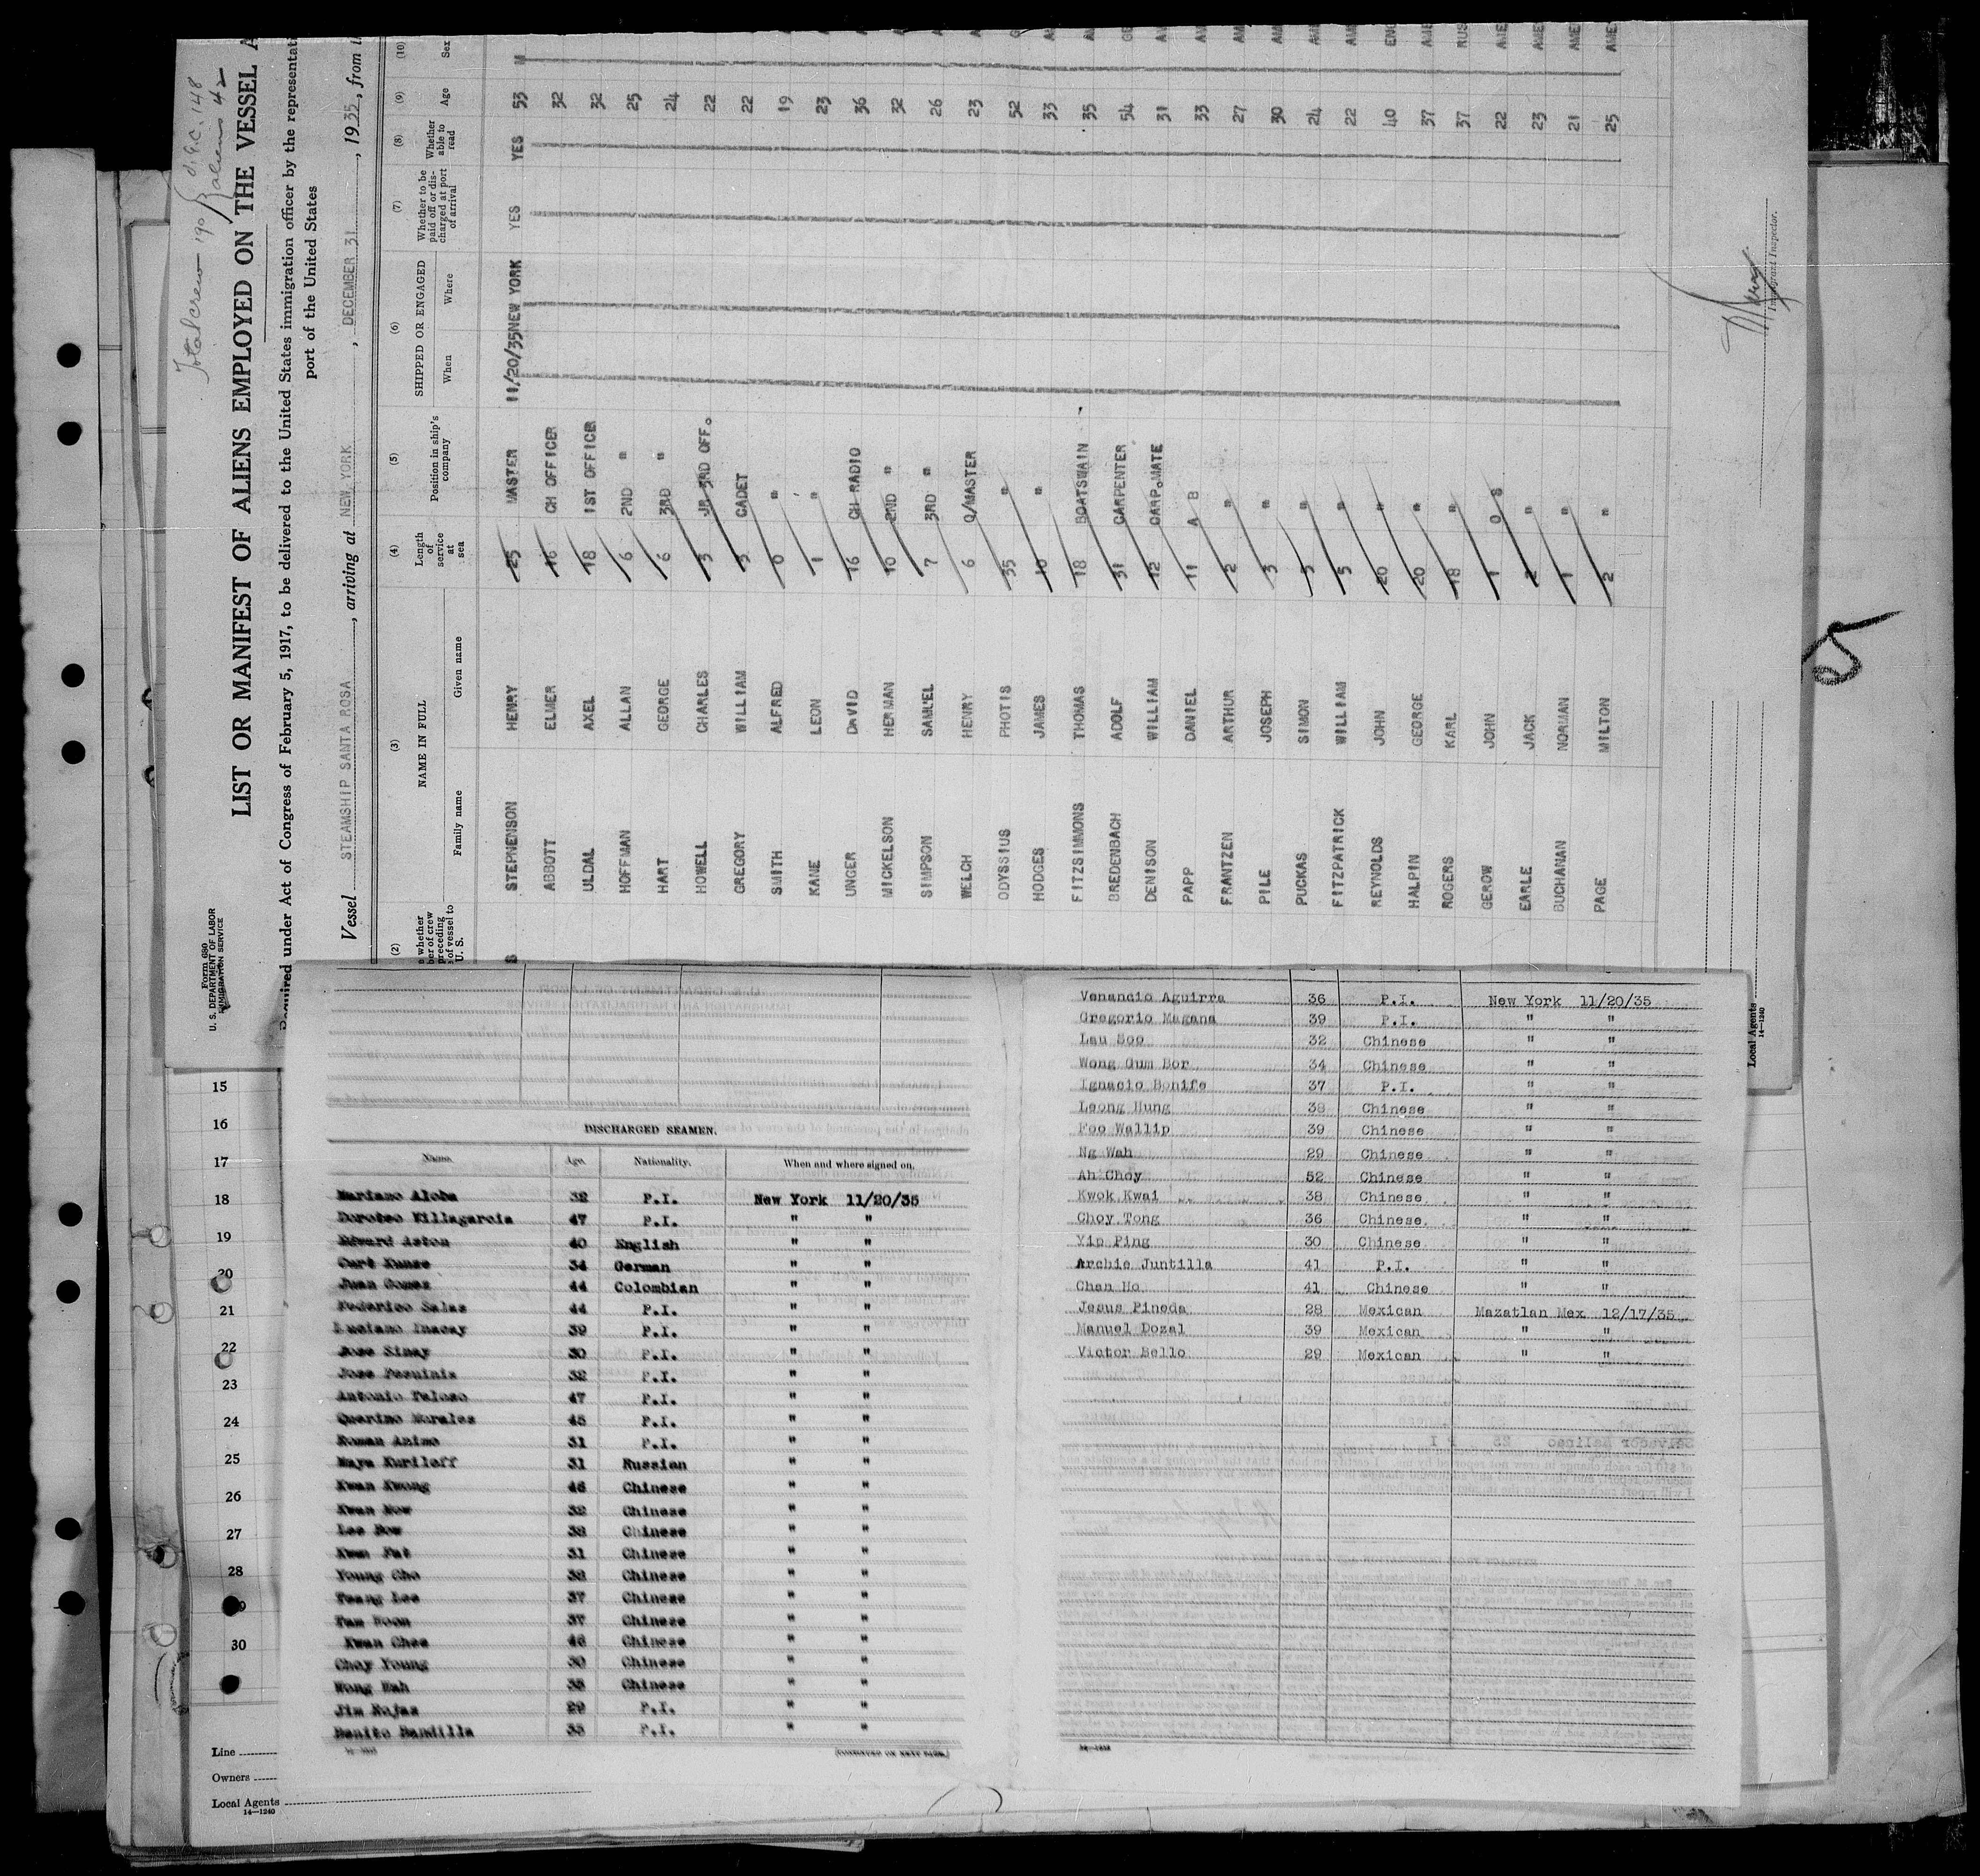 Total crew 190 U.S.C. 148
aliens 42
Form 680
U. S. DEPARTMENT OF LABOR
IMMIGRATION SERVICE
LIST OR MANIFEST OF ALIENS EMPLOYED ON THE VESSEL A
Required under Act of Congress of February 5, 1917, to be delivered to the United States immigration officer by the representati
port of the United States
Vessel STEAMSHIP SANTA ROSA, arriving at NEW YORK, DECEMBER 31, 1935, from
(2) (3) (4) (5) (6) (7) (8) (9) (10)
whether ber of crew preceding of vessel to U. S. NAME IN FULL Length of service at sea Position in ship's company SHIPPED OR ENGAGED Whether to be paid off or discharged at port of arrival Whether able to read Age Sex
Family name Given name When Where
STEPHENSON HENRY 25 MASTER 11/20/35 NEW YORK YES YES 53 M
ABBOTT ELMER 16 CH OFFICER 32
ULDAL AXEL 18 1ST OFFICER 32
HOFFMAN ALLAN 6 2ND " 25
HART GEORGE 6 3RD " 24
HOWELL CHARLES 3 JR 3RD OFF. 22
GREGORY WILLIAM 3 CADET 22
SMITH ALFRED 0 " 19
KANE LEON 1 " 23
UNGER DAVID 16 CH RADIO 36
MICKELSON HERMAN 10 2ND " 32
SIMPSON SAMUEL 7 3RD " 26
WELCH HENRY 6 Q/MASTER 23
ODYSSIUS PHOTIS 35 " 52
HODGES JAMES 10 " 33
FITZSIMMONS THOMAS 18 BOATSWAIN 35
BREDENBACH ADOLF 31 CARPENTER 54
DENISON WILLIAM 12 CARP.MATE 31
PAPP DANIEL 11 A B 33
FRANTZEN ARTHUR 2 " 27
PILE JOSEPH 3 " 30
PUCKAS SIMON 3 " 24
FITZPATRICK WILLIAM 5 " 22
REYNOLDS JOHN 20 " 40 ENG
HALPIN GEORGE 20 " 37 AME
ROGERS KARL 18 " 37 RUS
GEROW JOHN 1 O S 22 AME
EARLE JACK 2 " 23 AME
BUCHANAN NORMAN 1 " 21 AME
PAGE MILTON 2 " 25 AME
Immigrant Inspector.
Local Agents
14—1240
15
16
17
18
19
20
21
22
23
24
25
26
27
28
30
Line
Owners
Local Agents
14—1240
DISCHARGED SEAMEN.
Name. Age. Nationality. When and where signed on.
Mariano Aloba 32 P.I. New York 11/20/35
Doroteo Villagarcia 47 P.I. " "
Edward Aston 40 English " "
Curt Kunze 34 German " "
Juan Gomez 44 Colombian " "
Federico Salas 44 P.I. " "
Luciano Inacay 39 P.I. " "
Jose Sinay 30 P.I. " "
Jose Pesuinia 32 P.I. " "
Antonio Teloso 47 P.I. " "
Querino Morales 45 P.I. " "
Roman Animo 31 P.I. " "
Maya Kuriloff 31 Russian " "
Kwan Kwong 46 Chinese " "
Kwan Mow 32 Chinese " "
Lee Bow 38 Chinese " "
Kwan Fat 31 Chinese " "
Young Cho 38 Chinese " "
Tsang Lee 37 Chinese " "
Tam Woon 37 Chinese " "
Kwan Chee 46 Chinese " "
Choy Young 30 Chinese " "
Wong Wah 35 Chinese " "
Jim Rojas 29 P.I. " "
Benito Bandilla 35 P.I. " "
(CONTINUED ON NEXT PAGE.)
Venancio Aguirra 36 P.I. New York 11/20/35
Gregorio Magana 39 P.I. " "
Lau Soo 32 Chinese " "
Wong Gum Bor 34 Chinese " "
Ignacio Bonife 37 P.I. " "
Leong Hung 38 Chinese " "
Foo Wallip 39 Chinese " "
Ng Wah 29 Chinese " "
Ah Choy 52 Chinese " "
Kwok Kwai 38 Chinese " "
Choy Tong 36 Chinese " "
Yip Ping 30 Chinese " "
Archie Juntilla 41 P.I. " "
Chan Ho 41 Chinese " "
Jesus Pineda 28 Mexican Mazatlan Mex 12/17/35
Manuel Dozal 39 Mexican " "
Victor Bello 29 Mexican " "